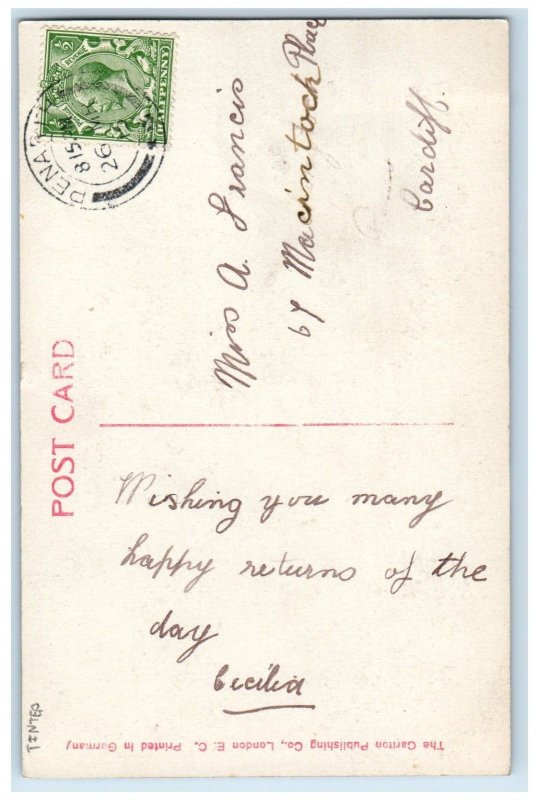 POST CARD
Wishing you many
happy returns of the
day
Cecilia
Miss A. Francis
67 Macintock Place
Cardiff.
HALFPENNY
REVENUE
1/2
PENAR
8 15
26
TINTED
The Carlton Publishing Co., London E. C. Printed in Germany